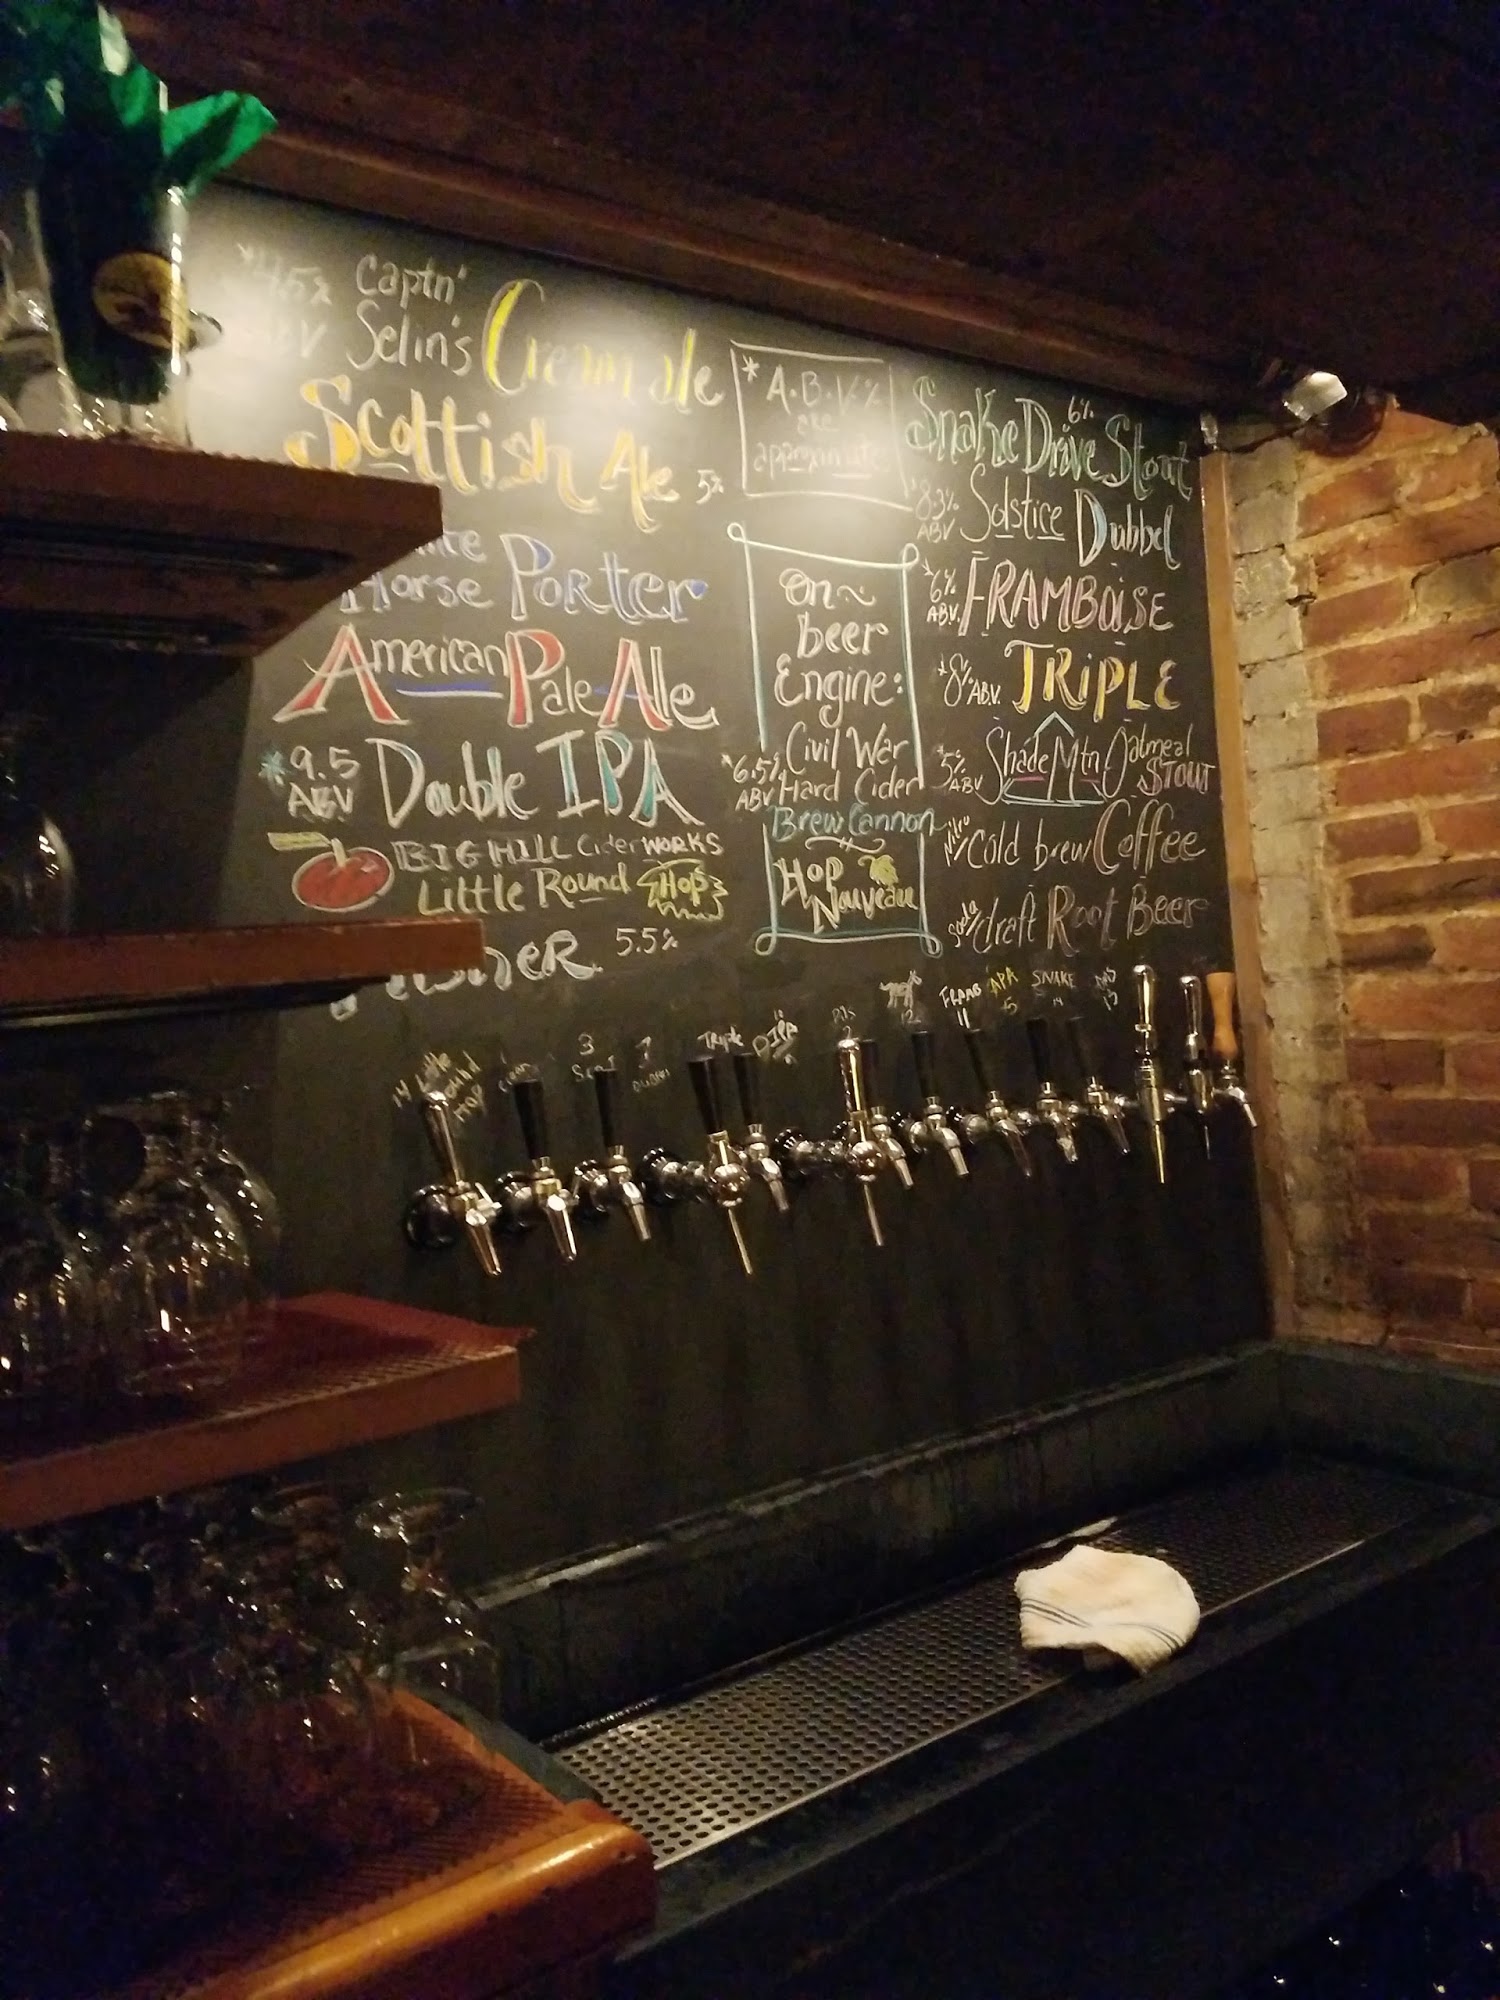 *4.5%
ABV
Captn'
Selin's Cream ale
Scottish Ale 5%
Horse Porter
American Pale Ale
*9.5
ABV
Double IPA
BIG HILL CiderWORKS
Little Round Hop
5.5%
*A.B.V.%
are
approximate
On~
beer
Engine:
Civil War
Hard Cider
*6.5%
ABV
Brew Cannon
Hop
Nouveau
6%
Snake Drive Stout
*8.3%
ABV
Solstice Dubbel
*6%
ABV.
FRAMBOISE
*8%
ABV.
TRiPLE
*5%
ABV
Shade Mtn Oatmeal
STOUT
Nitro
Cold brew Coffee
Soda
draft Root Beer
14 Little
Round
Hop
3
Scot
Triple
DIPA
FRAMB
11
APA
5
SNAKE